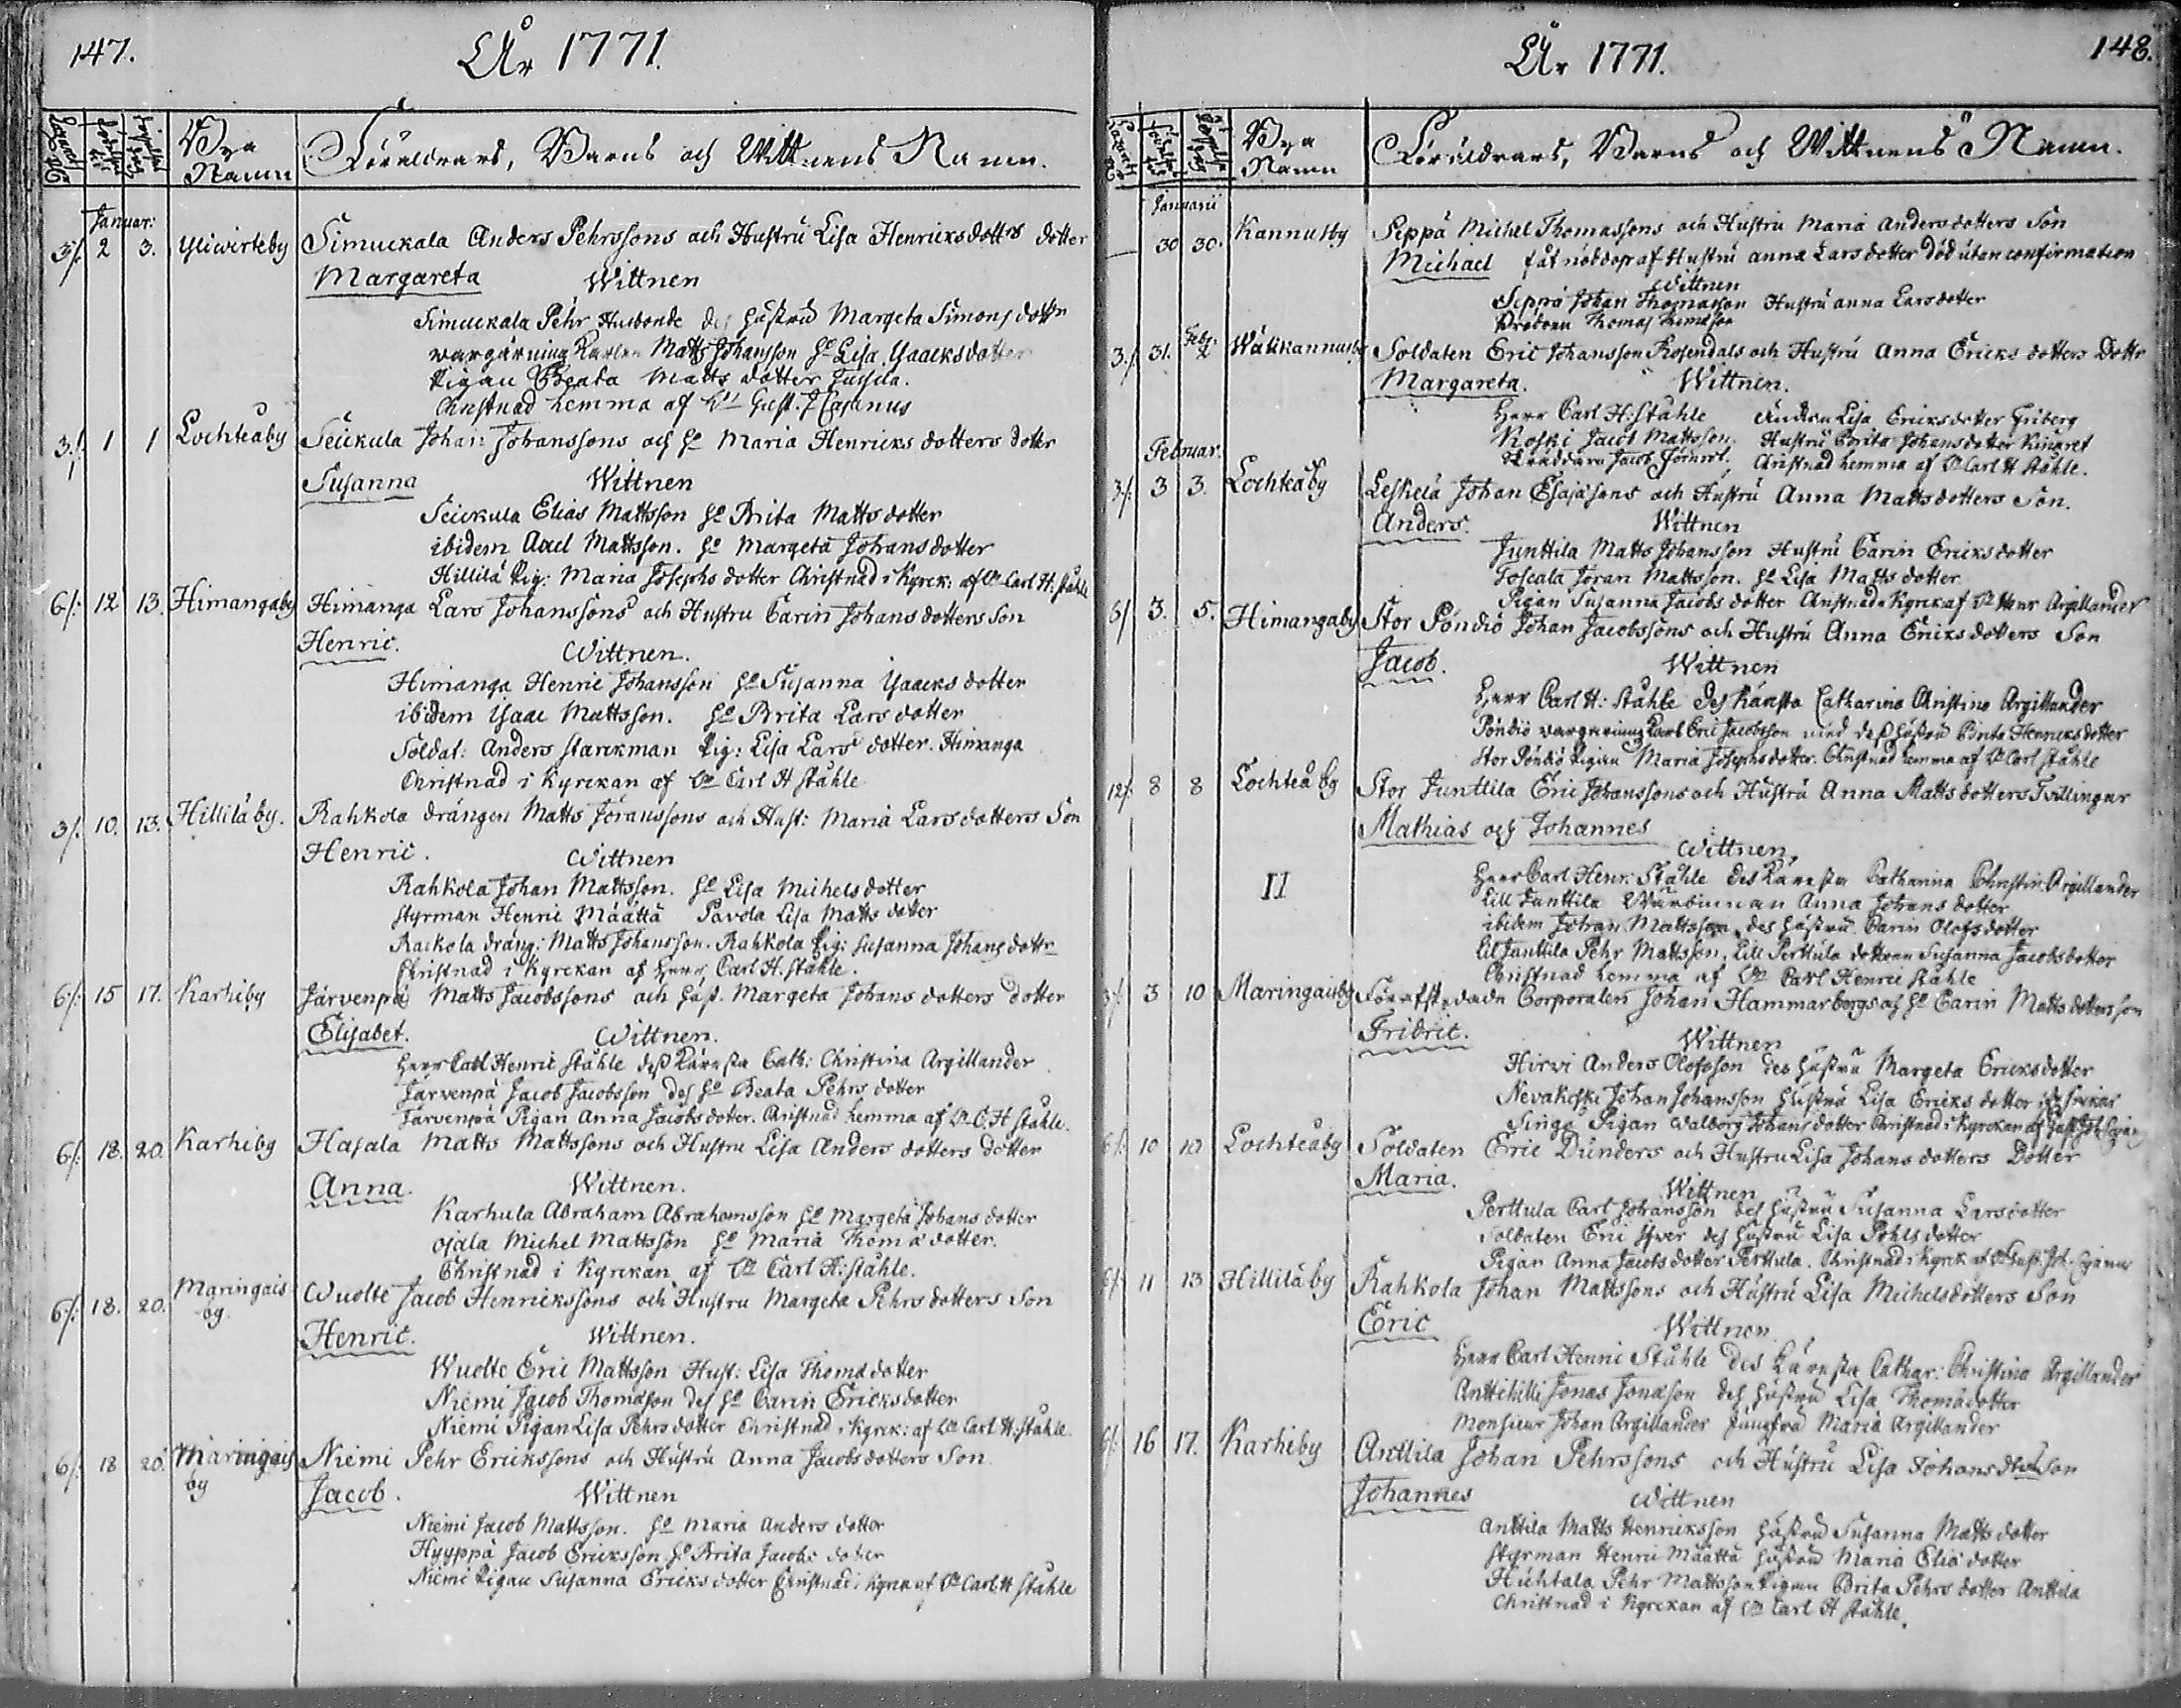 147.
År 1771.
Bya Namn
Föräldrars, Barns och Wittnens Namn.
Januar:
3/. 2 3. Yliwirteby Simuckala Anders Pehrssons och Hustru Lisa Henricksdotters dotter
Margareta Wittnen
Simuckala Pehr Husbonde des hustru Margeta Simons dotter
wargärning Karlen Matts Johansson Ho Lisa Ysaacksdotter
Pigan Beata Matts dotter Jussila.
Christnad hemma af Gust. J Cajanus
3/. 1 1 Lochteåby Seickula Johan Johanssons och Ho Maria Henricks dotters dotter
Susanna Wittnen
Seickula Elias Mattsson Ho Brita Matts dotter
ibidem Axel Mattsson. Ho Margeta Johans dotter
Hillilä Pig: Maria Josephs dotter Christnad i Kyrck: af Vn Carl H: ståhle
6/. 12 13. Himangaby Himanga Lars Johanssons och Hustru Carin Johans dotters Son
Henric. Wittnen.
Himanga Henric Johansson Ho Susanna Ysaacks dotter
ibidem Ysaac Mattsson. Ho Brita Lars dotter
Soldat: Anders Starckman Pig: Lisa Lars dotter. Himanga
Christnad i Kyrckan af Vn Carl H ståhle
3/. 10. 13. Hilliläby. Rahkola drängen Matts Joranssons och Hust: Maria Lars dotters Son
Henric. Wittnen
Rahkola Johan Mattsson. Ho Lisa Michels dotter
Styrman Henric Määttä Pavola Lisa Matts dotter
Rackola dräng: Matts Johansson. Rahkola Pig: Susanna Johans dotter
Christnad i Kyrckan af Herr Carl H. ståhle.
6/. 15 17. Karhiby Järvenpä Matts Jacobssons och Hust. Margeta Johans dotters dotter
Elisabet. Wittnen.
Herr Carl Henric ståhle des Käresta Cath: Christina Argillander
Järvenpä Jacob Jacobsson des Ho Beata Pehrs dotter
Järvenpä Pigan Anna Jacobs dotter. Christnad hemma af Vn C. H ståhle.
6/. 18. 20. Karhiby Hasala Matts Mattssons och Hustru Lisa Anders dotters dotter
Anna. Wittnen.
Karhula Abraham Abrahamsson Ho Margeta Johans dotter
Ojala Michel Mattsson Ho Maria Thoma dotter.
Christnad i Kyrckan af Vn Carl H: ståhle.
6/. 18. 20. Maringais by. Wuolte Jacob Henrickssons och Hustru Margeta Pehrs dotters Son
Henric. Wittnen.
Wuolte Eric Mattsson Hust: Lisa Thoma dotter
Niemi Jacob Thomasson des Ho Carin Ericks dotter
Niemi Pigan Lisa Pehrs dotter Christnad i Kyrck: af Vn Carl H: ståhle.
6/. 18 20. Maringais by Niemi Pehr Erickssons och Hustru Anna Jacobs dotters Son
Jacob. Wittnen
Niemi Jacob Mattsson. Ho Maria Anders dotter
Hyyppä Jacob Ericksson Ho Brita Jacobs dotter
Niemi Pigan Susanna Ericks dotter Christnad i Kyrck af Vn Carl H ståhle
År 1771.
148.
Bya Namn
Föräldrars, Barns och Wittnens Namn.
Januarii
30 30. Kannusby Seppä Michel Thomassons och Hustru Maria Andersdotters Son
Michael fåt nöddop af Hustru Anna Larsdotter död utan confirmation
Wittnen
Seppä Johan Thomasson Hustru Anna Larsdotter
Brodren Thomas Thomasson
3/. 31. Febr. 2 Wälikannusby Soldaten Eric Johansson Rosendals och Hustru Anna Ericks dotters Dotter
Margareta. Wittnen.
Herr Carl H: ståhle Änckan Lisa Ericksdotter Friberg
Koski Jacob Mattsson. Hustru Brita Johansdotter
Skräddare Jacob. Christnad hemma af Vn Carl H ståhle.
Februar.
3/. 3 3. Lochteåby Leskelä Johan Esajasons och Hustru Anna Mattsdotters Son.
Anders. Wittnen
Junttila Matts Johansson Hustru Carin Ericksdotter
Toscala Joran Mattsson. Ho Lisa Matts dotter
Pigan Susanna Jacobs dotter Christnad i Kyrck af Vn Henr Argillander
6/ 3. 5. Himangaby Stor Pöndiö Johan Jacobssons och Hustru Anna Ericks dotters Son
Jacob. Wittnen
Herr Carl H: ståhle des Käresta Catharina Christina Argillander
Pöndiö wargärning Karl Eric Jacobsson med des hustru Brita Henricksdotter
Stor Pöndiö Pigan Maria Josephsdotter. Christnad hemma af Vn Carl ståhle
12/. 8 8 Lochteåby Stor Junttila Eric Johanssons och Hustru Anna Matts dotters Tvillingar
Mathias och Johannes
Wittnen
II Herr Carl Henr: Ståhle des Käresta Catharina Christin: Argillander
Lill Junttila Wärdinnan Anna Johans dotter
ibidem Johan Mattsson, des Hustru Carin Olofs dotter
Lill Junttila Pehr Mattsson, Lill Perttula dottren Susanna Jacobsdotter
Christnad hemma af Vn Carl Henric ståhle
3/. 3 10 Maringaisby Corporalen Johan Hammarbergs och Ho Carin Matts dotters son
Fridric. Wittnen
Hirvi Anders Olofsson des hustru Margeta Ericksdotter
Nevakoski Johan Johansson Hustru Lisa Ericks dotter
Singo Pigan Walborg Johans dotter Christnad i Kyrckan af
6/. 10 10 Lochteåby Soldaten Eric Dunders och Hustru Lisa Johans dotters Dotter
Maria. Wittnen
Perttula Carl Johansson des hustru Susanna Larsdotter
Soldaten Eric Yfver des hustru Lisa Pohls dotter
Pigan Anna Jacobs dotter Perttula. Christnad i Kyrck af Gust. Joh. Cajanus
6/. 11 13 Hilliläby Rahkola Johan Mattssons och Hustru Lisa Michelsdotters Son
Eric Wittnen
Herr Carl Henric Ståhle des Käresta Cathar: Christina Argillander
Anttihilli Jonas Jonasson des hustru Lisa Thomadotter
Monsieur Johan Argillander Jungfru Maria Argillander
6/. 16 17. Karhiby Anttila Johan Pehrssons och Hustru Lisa Johans dtrs Son
Johannes Wittnen
Anttila Matts Henricksson hustru Susanna Matts dotter
Styrman Henric Määttä hustru Maria Elia dotter
Huhtala Pehr Mattsson Pigan Brita Pehrs dotter Anttila
Christnad i Kyrckan af Vn Carl H ståhle.